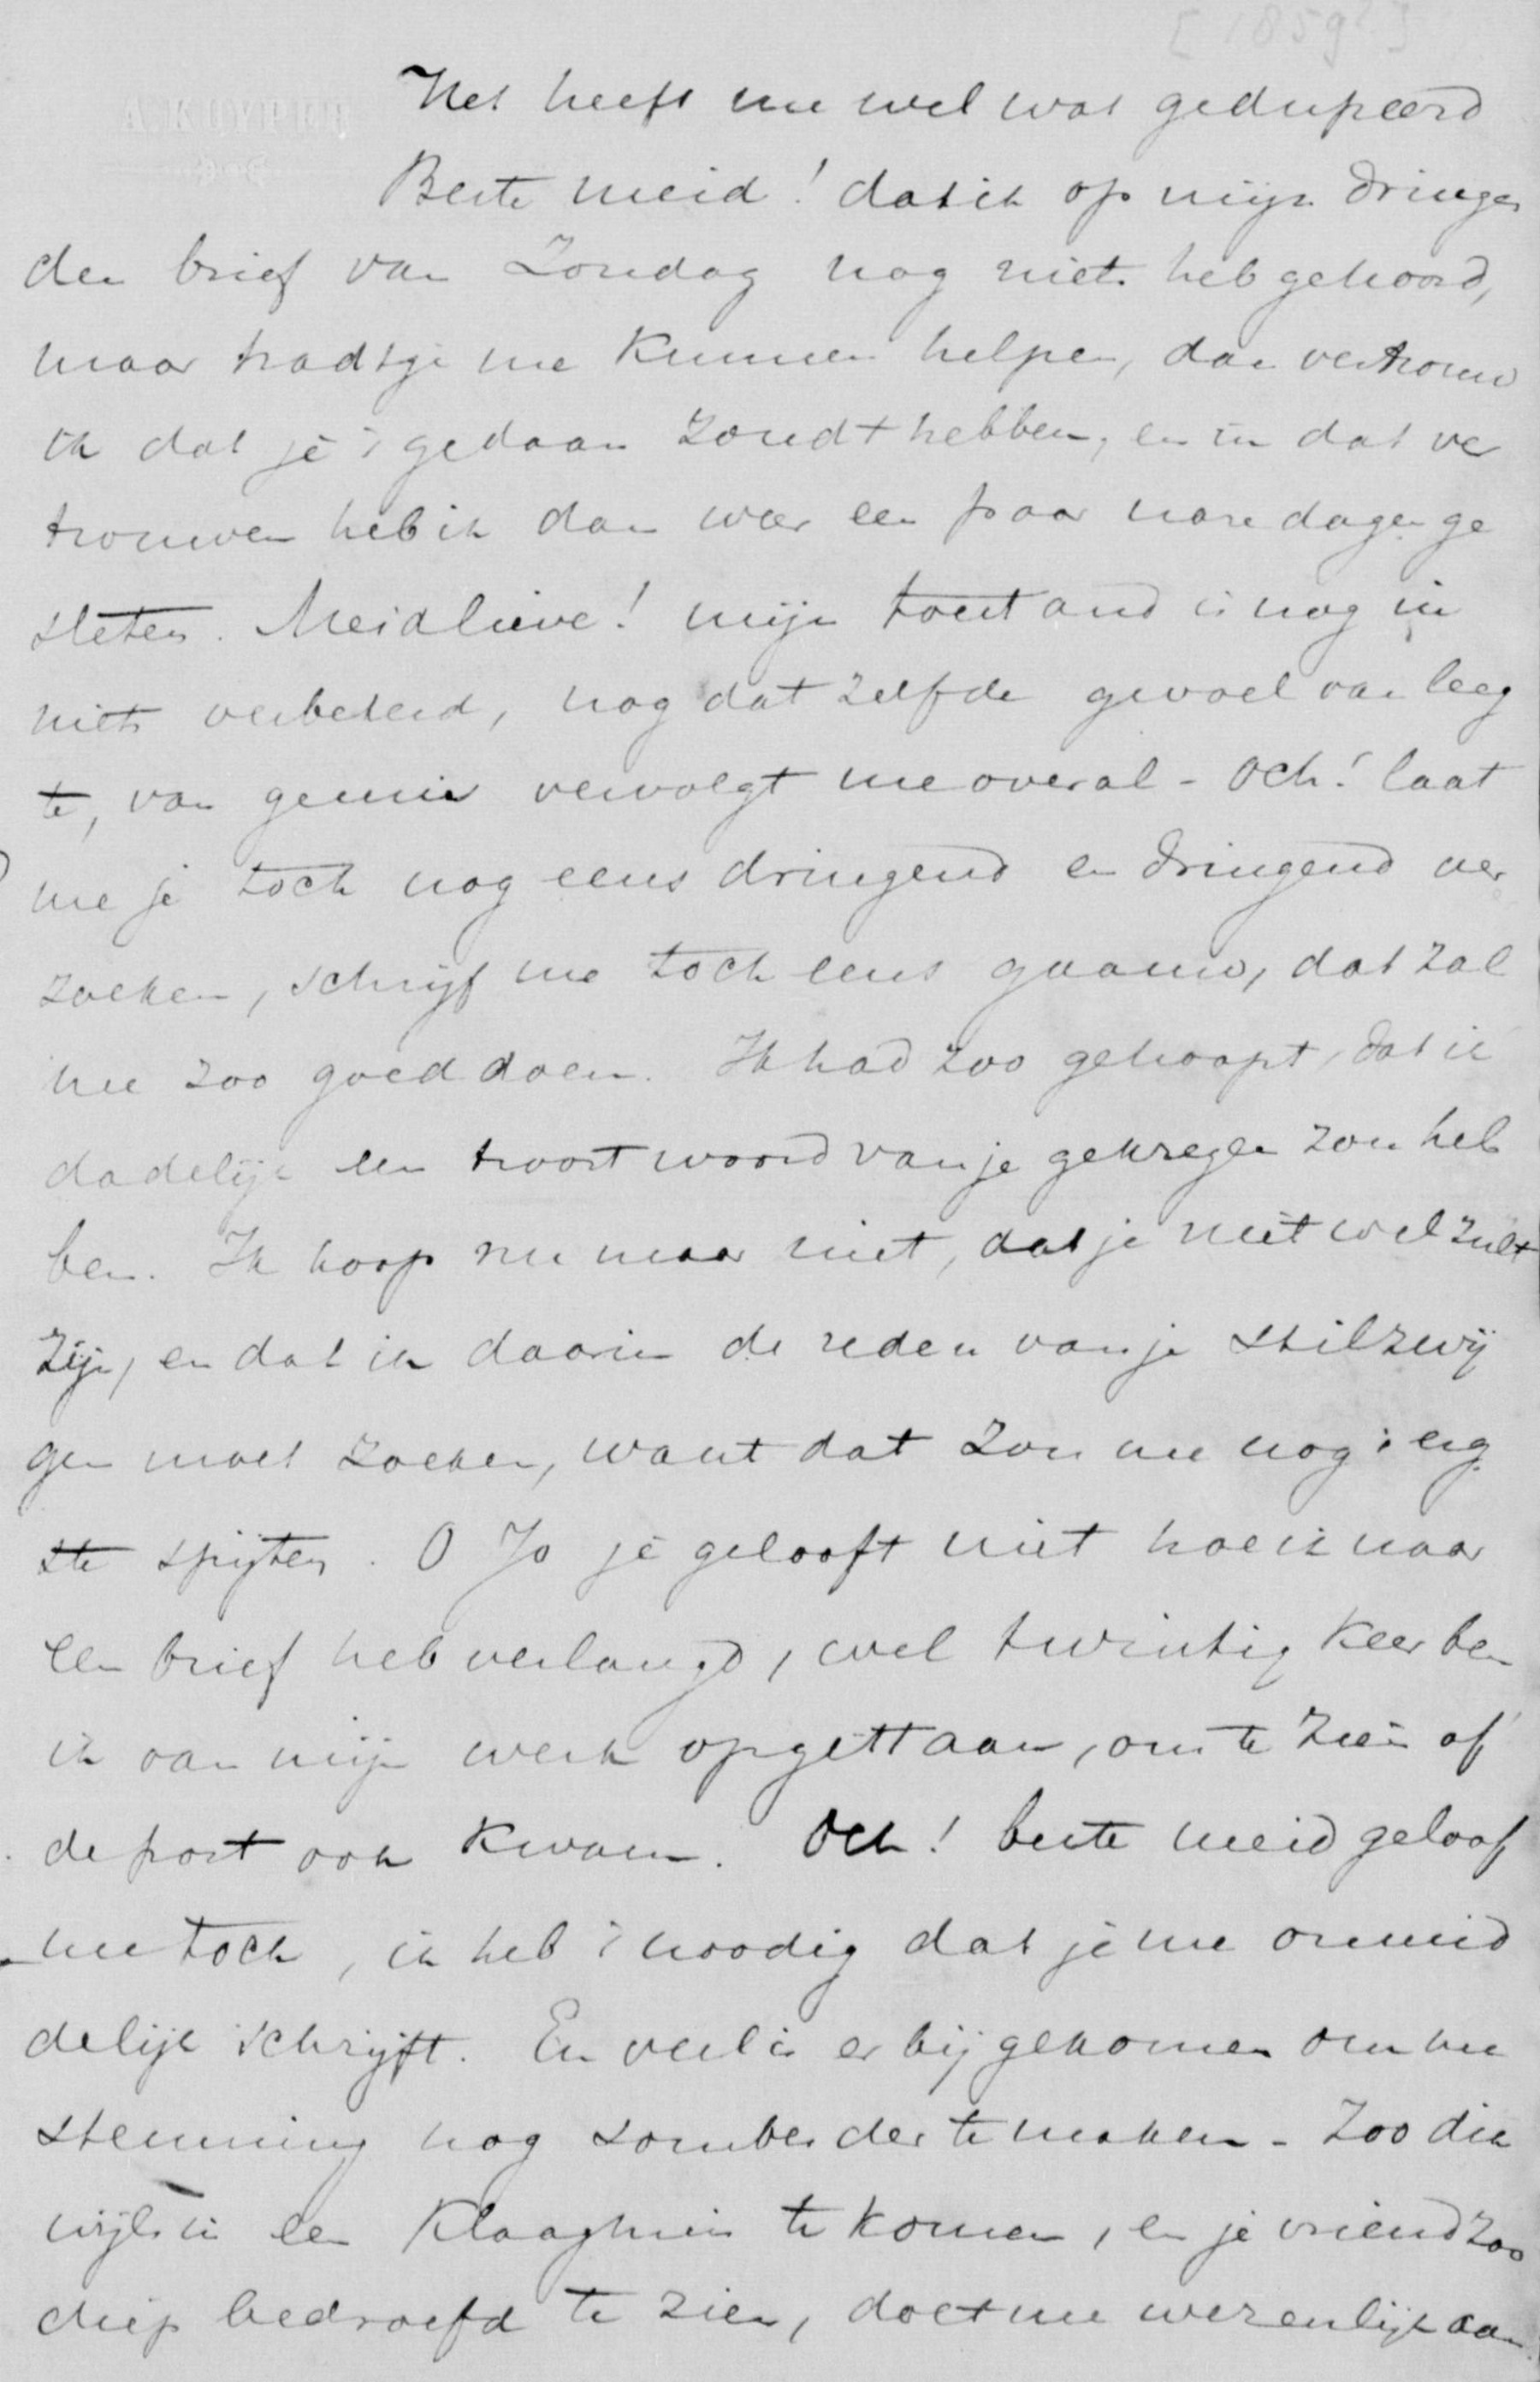 [1859?]
A. KUYPER
Het heeft me wel wat gedupeerd
Beste meid! dat ik op mijn dringen
den brief van Zondag nog niets heb gehoord,
maar hadt je me kunnen helpen, dan vertrouw
ik dat je 't gedaan zoudt hebben, en in dat ver
trouwen heb ik dan weer een paar nare dagen ge
sleten. Meidlieve! mijn toestand is nog in
niets verbeterd, nog dat zelfde gevoel van leeg
te, van gemis vervolgt me overal - Och! laat
me je toch nog eens dringend en dringend ver
zoeken, schrijf me toch eens gaauw, dat zal
me zoo goed doen. Ik had zoo gehoopt, dat ik
dadelijk een troostwoord van je gekregen zou heb
ben. Ik hoop nu maar niet, dat je niet wel zult
zijn, en dat ik daarin de reden van je stilzwij
gen moet zoeken, want dat zou me nog 't erg
ste spijten. O Jo je gelooft niet hoe ik naar
een brief heb verlangd, wel twintig keer ben
ik van mijn werk opgestaan, om te zien of
de post ook kwam. Och! beste meid geloof
me toch, ik heb 't noodig dat je me onmid
delijk schrijft. En veel is er bij gekomen om me
stemming nog somberder te maken - Zoo dik
wijls in een klaaghuis te komen, en je vriend zoo
diep bedroefd te zien, doet me wezenlijk aan.